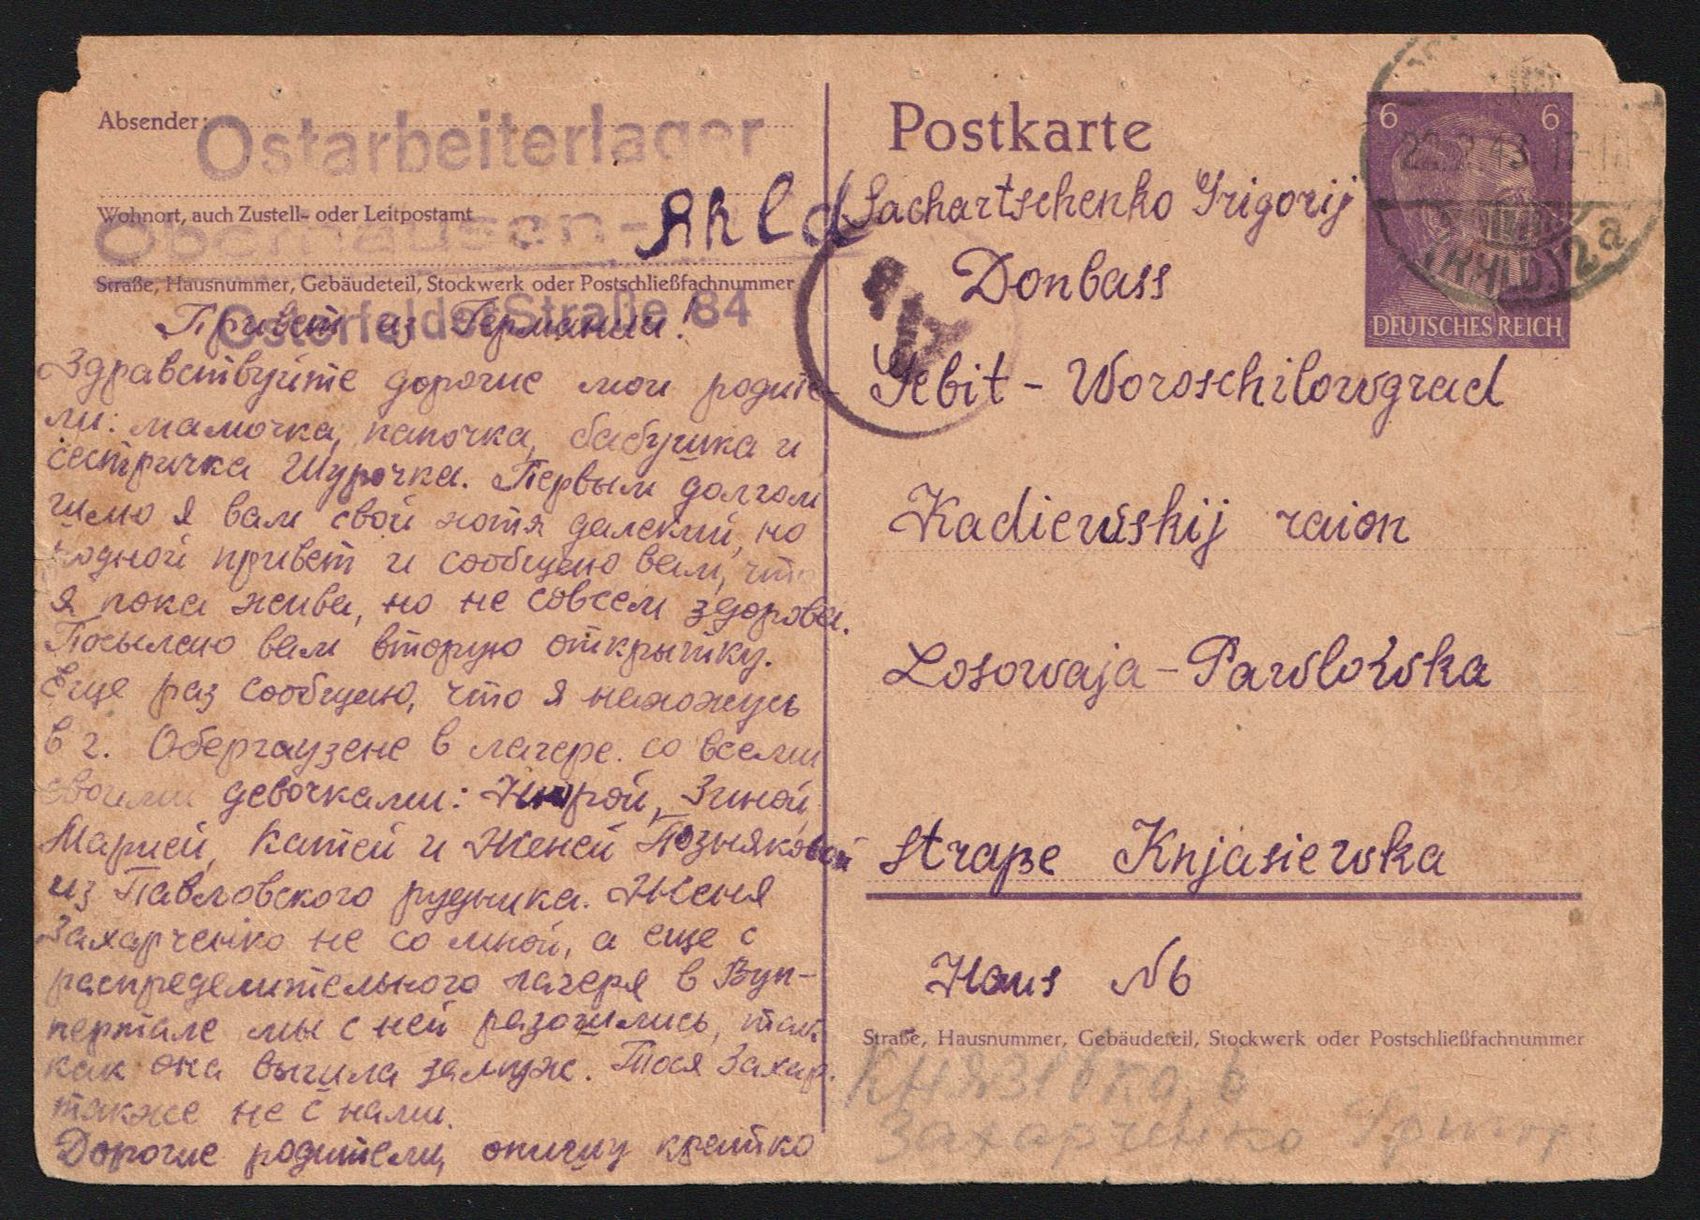 Absender:
Ostarbeiterlager
Wohnort, auch Zustell- oder Leitpostamt
Oberhausen-Rhld
Straße, Hausnummer, Gebäudeteil, Stockwerk oder Postschließfachnummer
Osterfelder Straße 84
Привет из Германии!
Здравствуйте дорогие мои родите-
ли: мамочка, папочка, бабушка и
сестричка Шурочка. Первым долгом
шлю я вам свой хотя далекий, но
родной привет и сообщаю вам, что
я пока жива, но не совсем здорова.
Посылаю вам вторую открытку.
Еще раз сообщаю, что я нахожусь
в г. Обергаузене в лагере. со всеми
своими девочками: Нюрой, Зиной,
Марией, Катей и Женей Позняковой
из Павловского рудника. Женя
Захарченко не со мной, а еще с
распределительного лагеря в Вуп-
пертале мы с ней разошлись, так
как она вышла замуж. Тося Захар.
также не с нами.
Дорогие родители, опишу кратко
Postkarte
6 6
22.2.43 17-18
(RHLD) 2a
DEUTSCHES REICH
Sachartschenko Grigorij
Donbass
Gebit - Woroschilowgrad
Kadiewskij raion
Losowaja - Pawlowka
Straße Knjasiewka
Haus № 6
Straße, Hausnummer, Gebäudeteil, Stockwerk oder Postschließfachnummer
Князівка, 6
Захарченко Григор